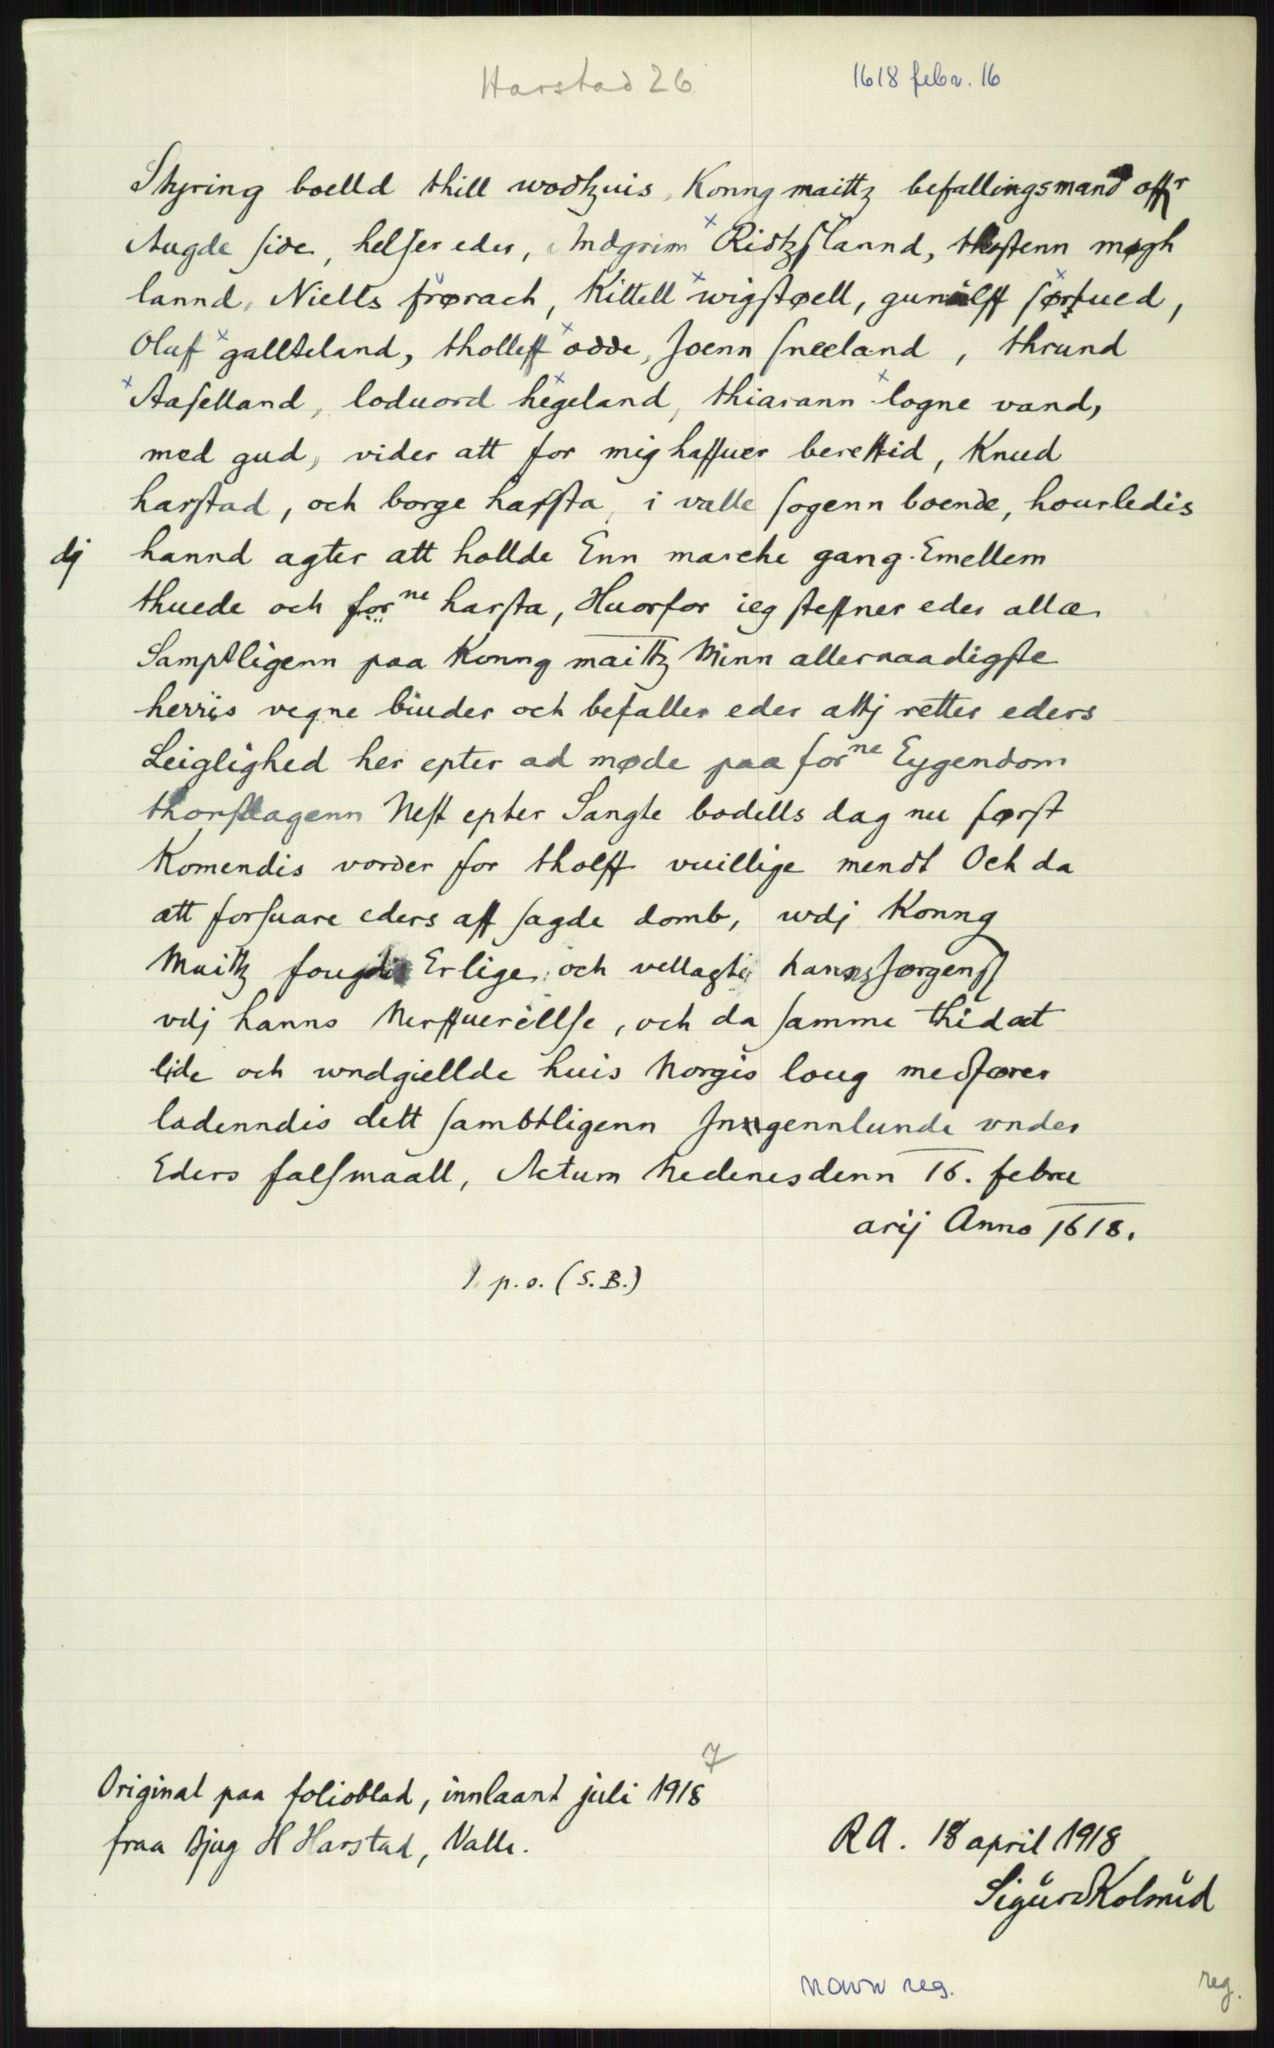 Harstad 26
1618 febr. 16
Styring boelld thill wodtzuis, Konng maittz befallingsmand offr
Augde side, helser eder, Andgrim Ridtzslannd, thostenn mogh
lannd, Niells frørach, Kittell wigstøell, gunulff sørtued,
Oluf gallteland, tholleff odde, Joenn sneeland, thrund
Aaselland, loduord hegeland, thiarann logne vand,
med gud, vider att for mig haffuer berettid, Knud
harstad, och borge harsta, i valle sogenn boende, hourledis
dj hannd agter att hollde Enn marche gang Emellem
thuede och forne harsta, Huorfor ieg steffner eder alle
Samptligenn paa Konng maittz Minn allernaadigste
herris vegne biuder och befaller eder attj retter eders
Leiglighed her epter ad møde paa forne Eygendom
thorsdagenn Nest epter Sangte bodells dag nu først
Komendis vorder for tholff vuillige mendt Och da
att forsuare eders aff sagde domb, wdj Konng
Maittz fougdis Erlige och vellagte hanns Jørgens
vdj hanns Nerffuerellse, och da samme thid at
lide och wndgiellde huis Norgis loug medfører
ladenndis dett sambtligenn Inngennlunde vnder
Eders falsmaall, Actum Nedenes denn 16. febru
arij Anno 1618.
l. p. s. (S. B.)
Original paa folioblad, innlaant juli 1918
7
fraa Bjug H Harstad, Valle.
RA. 18 april 1918
Sigurd Kolsrud
navn reg.
reg.